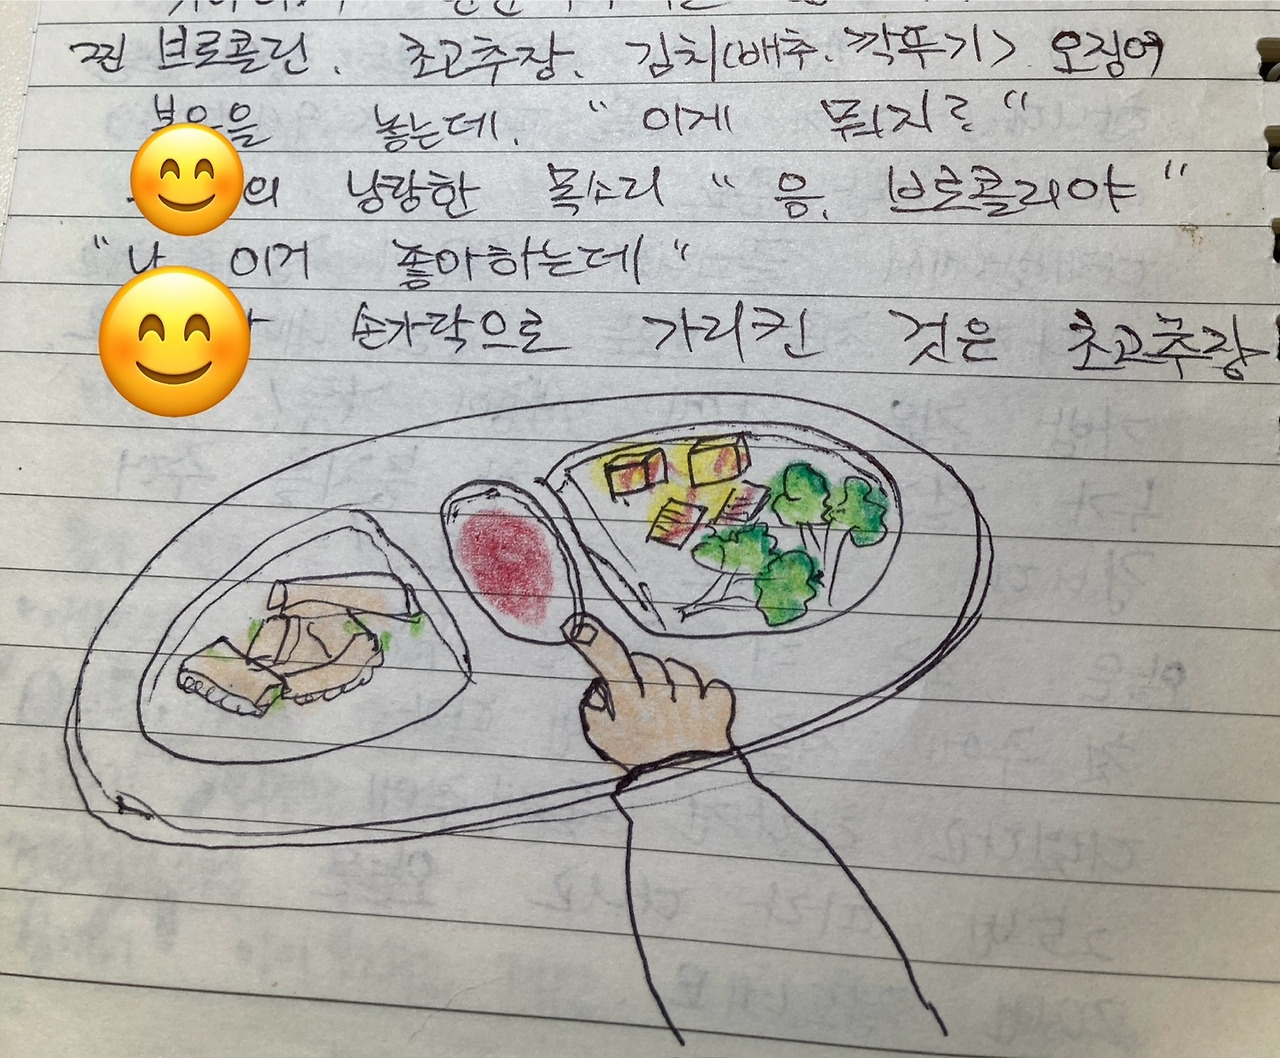 찐 브로콜린. 초고추장. 김치(배추. 깍뚜기> 오징어
볶음을 놓는데. " 이게 뭐지? "
의 낭랑한 목소리 " 음. 브로콜리야 "
" 나 이거 좋아하는데 "
손가락으로 가리킨 것은 초고추장